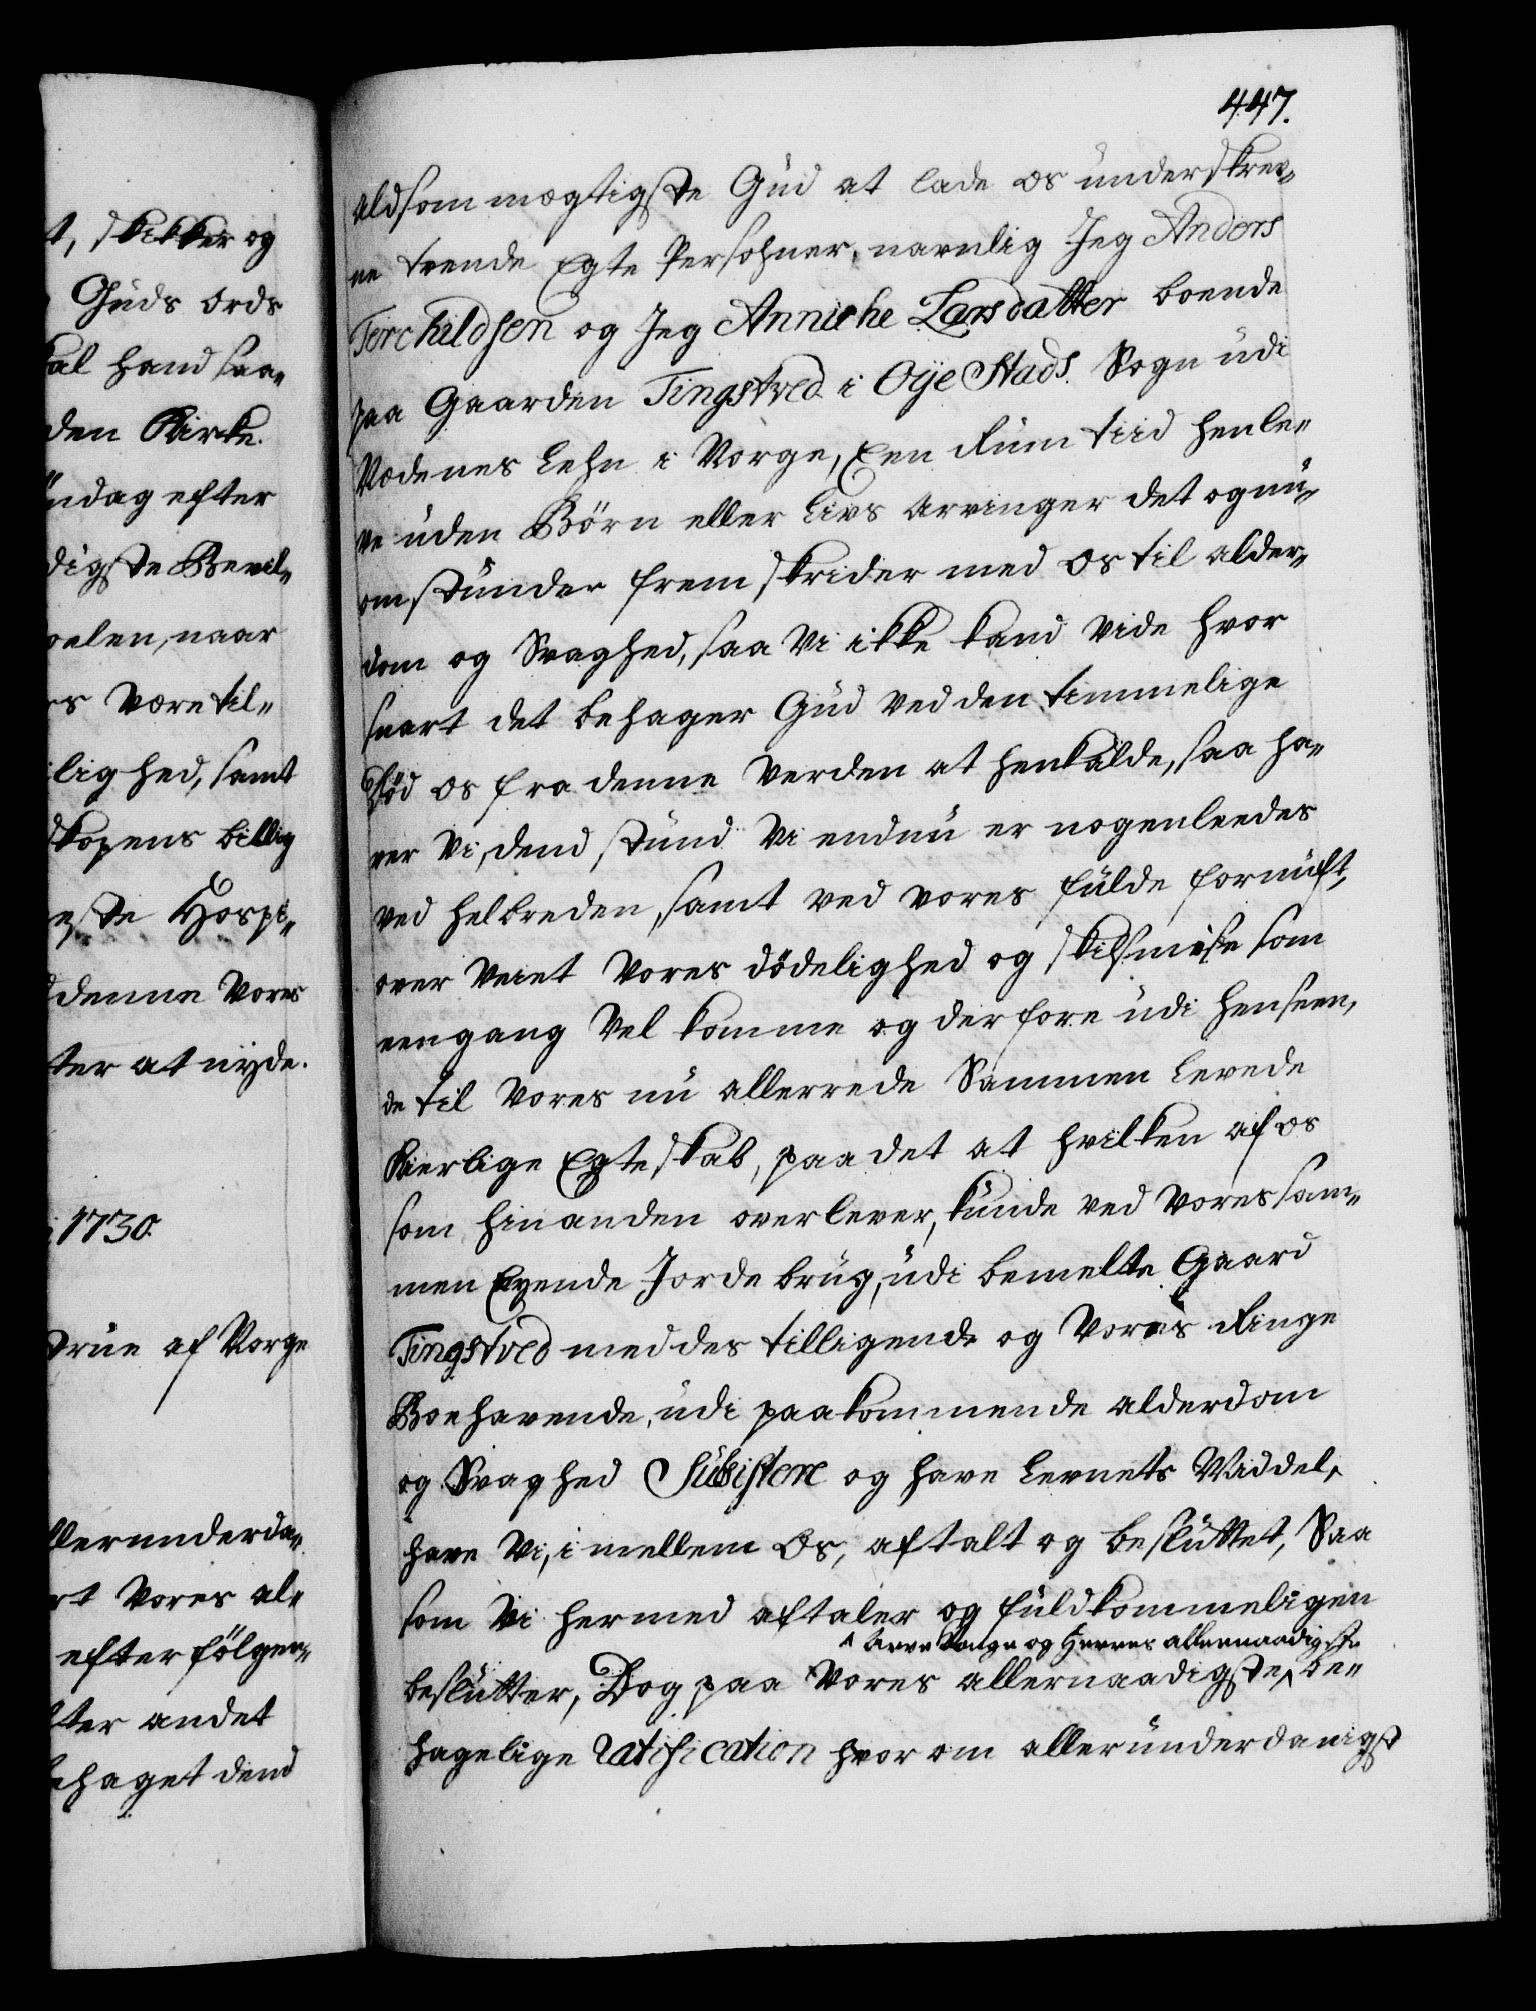 t, skikker og
Guds Ords
kal hand saa„
den Kirke.
ndag efter
digste Bevil„
oelen, naar
rs være til„
lighed, samt
dkopens billig
este Hospi„
denne Vores
ter at nyde.
1730.
Drüe af Norge
llerunderda„
rt Vores al„
efterfölger„
ter andet
ehaget dend
447.
aldsommægtigste Gud at lade os underskrev„
ne tvende Egte Persohner, navnlig Jeg Anders
Terchildsen og Jeg Anniche Larsdatter boende
paa Gaarden Tingstved i Oije Stads Sogn udi
Nedenes Lehn i Norge, Een Rum tiid henle„
ve uden Börn eller Livs Arvinger det og nu„
omstunder fremskrider med Os til alder„
dom og Svaghed, saa Vi ikke kand vide hvor
snart det behager Gud ved den timmelige
Död os fra denne Verden at henkalde, saa ha„
ver Vi, dend stund Vi endnu er nogenleedes
ved helbreden, samt ved vores fulde fornuft,
over veiet Vores dödelighed og skilsmise som
eengang Vel komme og derfore udi henseen,
de til Vores nu allerrede Sammen levede
Kierlige Egteskab, paa det at hvilken af os
som hinanden overlever, kunde ved vores sam„
men Eyende Jordebrug, udi bemelte Gaard
Tingstved med des tilligende og Vores Ringe
Boehavende, udi paakommende alderdom
og Svaghed Subsistere og have Levnets Middel,
have Vi, i mellem Os, aftalt og besluttet, Saa
som Vi hermed aftaler og fuldkommeligen
^ Arve Konge og Herres allernaadigste
beslutter, Dog paa Vores allernaadigste ^ be„
hagelige Ratification hvorom allerunderdanigst